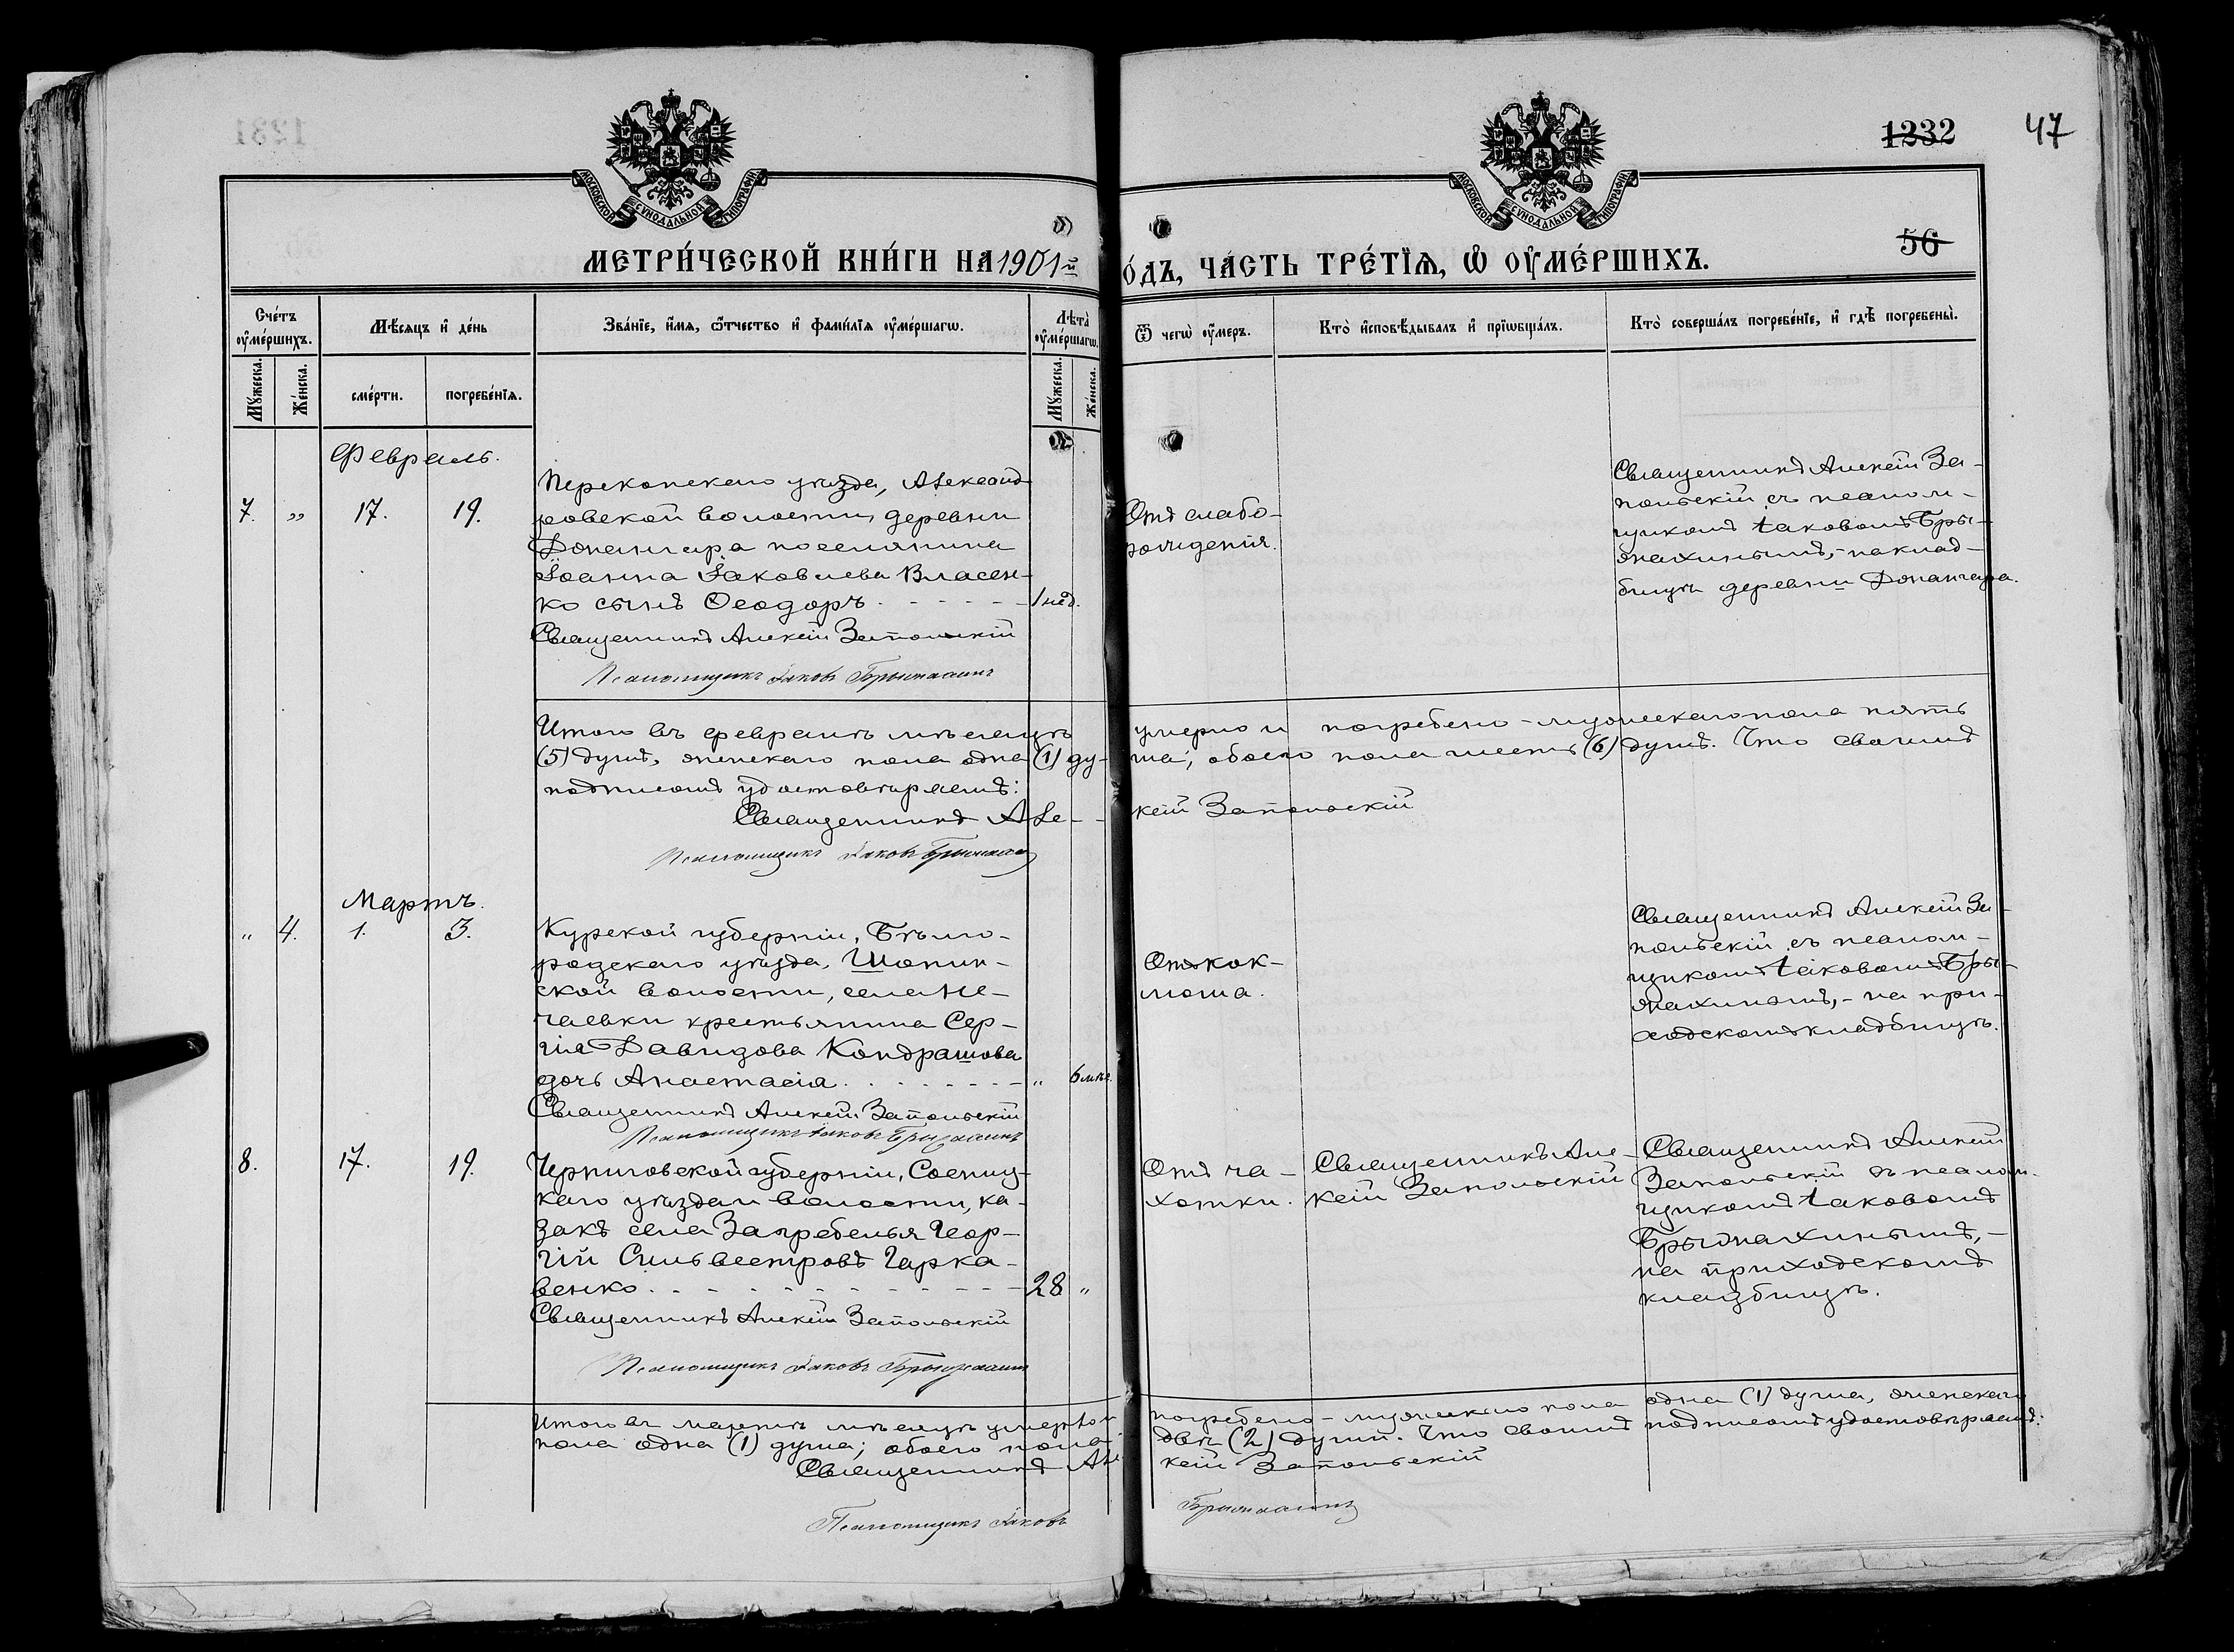 1232
47
56
МОСКОВСКОЙ СѴНОДАЛЬНОЙ ТИПОГРАФІИ
МОСКОВСКОЙ СѴНОДАЛЬНОЙ ТИПОГРАФІИ
МЕТРИ́ЧЕСКОЙ КНИ́ГИ НА 1901й
О́ДЪ, ЧА́СТЬ ТРЕ́ТІѦ, Ѡ ОУ҆МЕ́РШИХЪ.
Сче́тъ оу҆ме́ршихъ.
Мѣ́сяцъ и҆ де́нь
Зва́нїе, и҆́мѧ, ѻ҆́тчество и҆ фами́лїѧ оу҆ме́ршагѡ.
Лѣта̀ оу҆ме́ршагѡ.
Ѿ чегѡ̀ оу҆́меръ.
Кто̀ и҆сповѣ́дывалъ и҆ прїѡбща́лъ.
Кто̀ соверша́лъ погребе́нїе, и҆ гдѣ̀ погребены̀.
Мꙋ́жеска.
Же́нска.
сме́рти.
погребе́нїѧ.
Мꙋ́жеска.
Же́нска.
Февраль.
7. „ 17. 19.
Перекопскаго уѣзда, Александ-
ровской волости, деревни
Джанкара поселянина
Іоанна Іаковлева Власен-
ко сынъ Ѳеодоръ - - - - - 1 нед.
Священникъ Алексій Запольскій
Псаломщикъ Іаковъ
Отъ слабо-
рожденія.
Священникъ Алексій За-
польскій съ псалом-
щикомъ Іаковомъ Бры-
жахинымъ, - на клад-
бищѣ деревни
Итого въ февралѣ мѣсяцѣ умерло и погребено - мужескаго пола пять
(5) душъ, женскаго пола одна (1) ду- ша; обоего пола шесть (6) душъ. Что своимъ
подписомъ удостовѣряемъ:
Священникъ Але- ксій Запольскій
Псаломщикъ Іаковъ
Мартъ.
„ 4. 1. 3.
Курской губерніи, Бѣло-
градскаго уѣзда, Шопин-
ской волости, села Не-
чаевки крестьянина Сер-
гія Давидова Кондрашова
дочь Анастасія - - - - - „ 6 мѣс.
Священникъ Алексій Запольскій
Псаломщикъ Іаковъ
Отъ кок-
люша.
Священникъ Алексій За-
польскій съ псалом-
щикомъ Іаковомъ Бры-
жахинымъ, - на при-
ходскомъ кладбищѣ.
8. 17. 19.
Черниговской губерніи, Сосниц-
каго уѣзда и волости, ка-
закъ села Загребелья Геор-
гій Сильвестровъ Гарка-
венко - - - - - 28 „
Священникъ Алексій Запольскій
Псаломщикъ Іаковъ
Отъ ча-
хотки.
Священникъ Але-
ксій Запольскій
Священникъ Алексій
Запольскій съ псалом-
щикомъ Іаковомъ
Брыжахинымъ, -
на приходскомъ
кладбищѣ.
Итого въ мартѣ мѣсяцѣ умерло и погребено - мужескаго пола одна (1) душа, женскаго
пола одна (1) душа; обоего пола двѣ (2) души. Что своимъ подписомъ удостовѣряемъ:
Священникъ Але- ксій Запольскій
Псаломщикъ Іаковъ